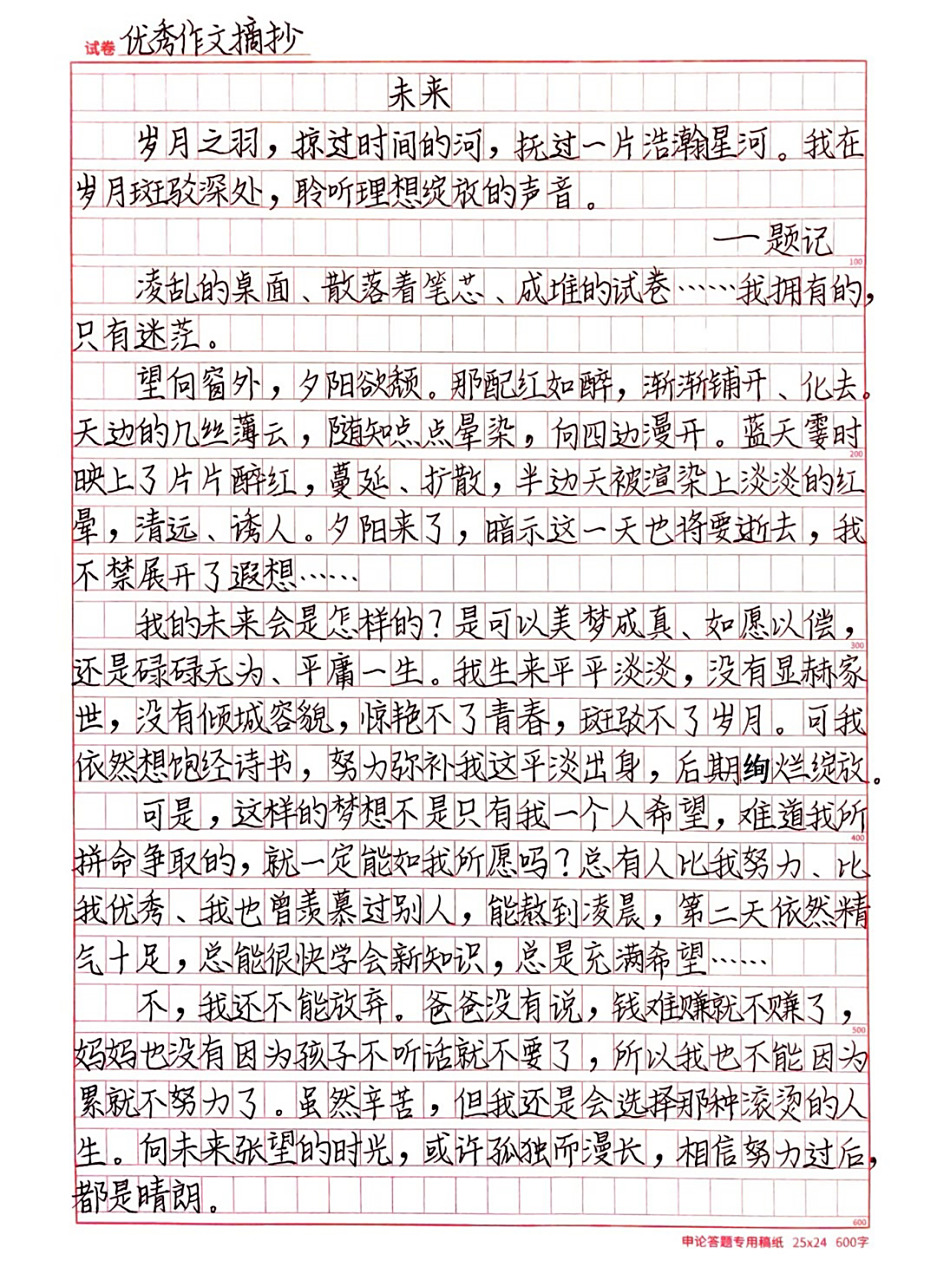 试卷 优秀作文摘抄
未来
岁月之羽，掠过时间的河，抚过一片浩瀚星河。我在
岁月斑驳深处，聆听理想绽放的声音。
——题记
100
凌乱的桌面、散落着笔芯、成堆的试卷……我拥有的，
只有迷茫。
望向窗外，夕阳欲颓。那配红如醉，渐渐铺开、化去。
天边的几丝薄云，随知点点晕染，向四边漫开。蓝天霎时
200
映上了片片醉红，蔓延、扩散，半边天被渲染上淡淡的红
晕，清远、诱人。夕阳来了，暗示这一天也将要逝去，我
不禁展开了遐想……
我的未来会是怎样的？是可以美梦成真、如愿以偿，
300
还是碌碌无为、平庸一生。我生来平平淡淡，没有显赫家
世，没有倾城容貌，惊艳不了青春，斑驳不了岁月。可我
依然想饱经诗书，努力弥补我这平淡出身，后期绚烂绽放。
可是，这样的梦想不是只有我一个人希望，难道我所
400
拼命争取的，就一定能如我所愿吗？总有人比我努力、比
我优秀、我也曾羡慕过别人，能熬到凌晨，第二天依然精
气十足，总能很快学会新知识，总是充满希望……
不，我还不能放弃。爸爸没有说，钱难赚就不赚了，
500
妈妈也没有因为孩子不听话就不要了，所以我也不能因为
累就不努力了。虽然辛苦，但我还是会选择那种滚烫的人
生。向未来张望的时光，或许孤独而漫长，相信努力过后，
都是晴朗。
600
申论答题专用稿纸 25x24 600字